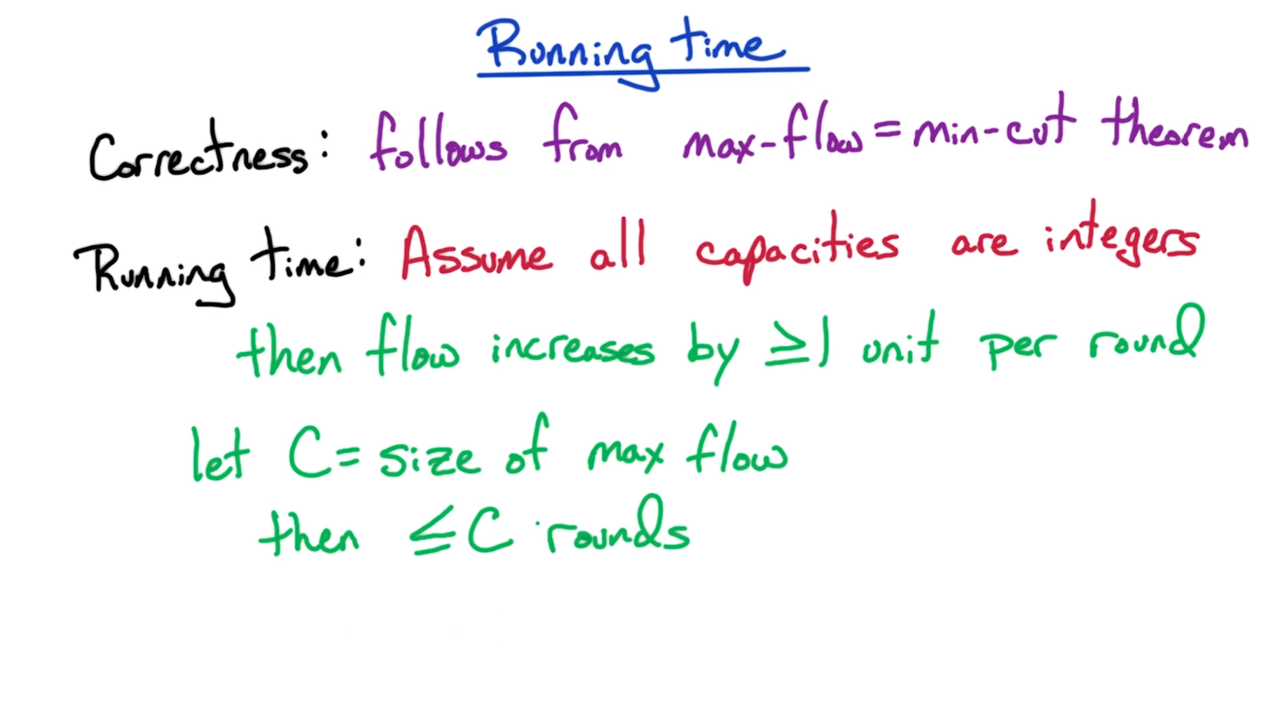 Running time
Correctness: follows from max-flow = min-cut theorem
Running time: Assume all capacities are integers
then flow increases by ≥1 unit per round
let C = size of max flow
then ≤ C rounds